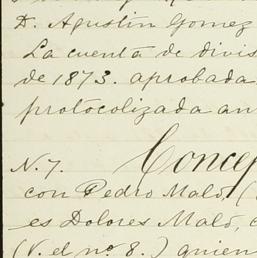 D. Agustin Gomez
La cuenta de divis
de 1873. aprobada
protocolizada an
N. 7. Concep
con Pedro Malo, (
es Dolores Malo, c
(V. el nº. 8.) quien